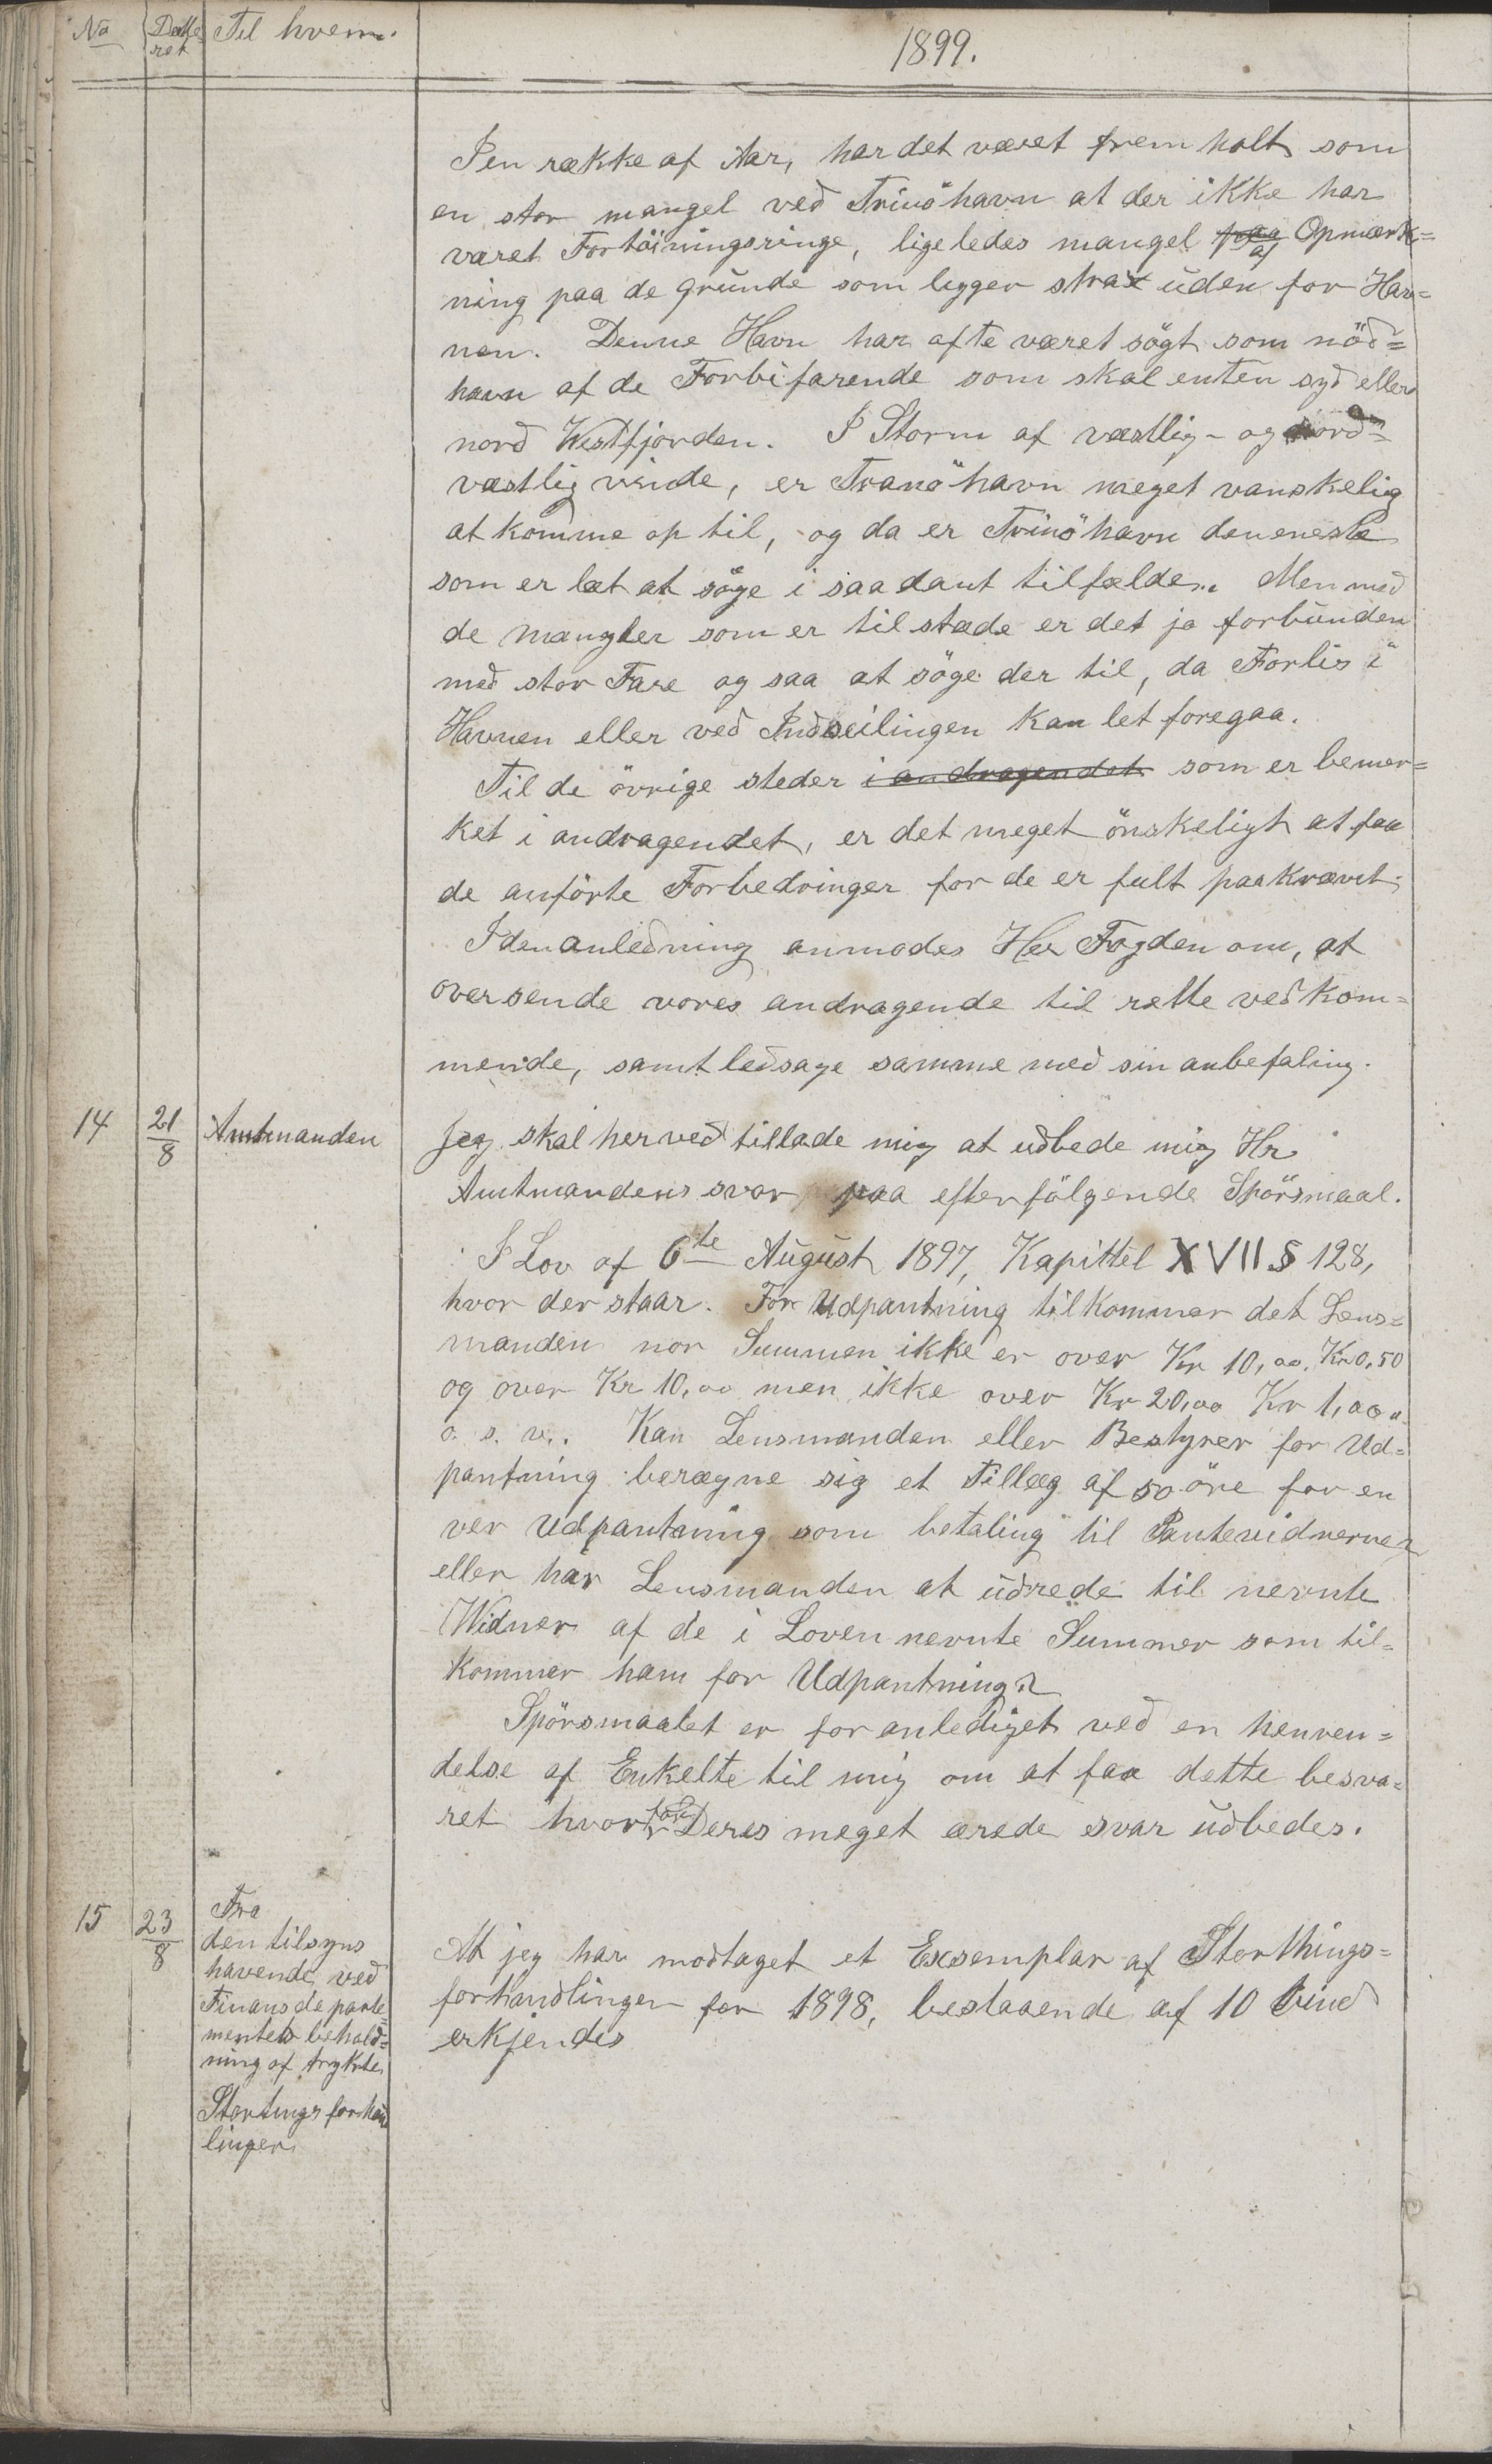 No Datte- Til hvem.
ret
1899.
I en række af Aar, har det været fremholt som
en stor mangel ved Trinöhavn at der ikke har
været Fortöiningsringe, ligeledes mangel paa af Opmærk=
ning paa de grunde som ligger strax uden for Hav=
nen. Denne Havn har ofte været sögt som nöd=
havn af de Forbifarende som skal enten syd eller
nord Westfjorden. I Storm af væstlig- og nord=
væstlig vinde, er Tranöhavn meget vanskelig
at komme op til, og da er Trinöhavn deneneste
som er let at söge i saadant tilfælde. Men med
de mangler som er tilstæde er det jo forbunden
med stor Fare og saa at söge der til, da Forlis i
Havnen eller ved Indseilingen kan let foregaa.
Til de övrige steder i andragendet som er bemer=
ket i andragendet, er det meget önskeligt at faa
de anförte Forbedringer for de er fult paakrævet.
I den anledning anmodes Her Fogden om, at
oversende vores andragende til rette vedkom=
mende, samt ledsage samme med sin anbefaling.
14 21/8 Amtmanden
Jeg skal herved tillade mig at udbede mig Hr.
Amtmandens svar paa efterfölgende Spörsmaal.
I Lov af 6te August 1897, Kapittel XVII § 128,
hvor der staar. For Udpantning tilkommer det Lens=
manden nor Summen ikke er over Kr 10,00. Kr 0,50
og over Kr 10,00 men ikke over Kr 20,00 Kr 1,00
o. s. v. Kan Lensmanden eller Bestyrer for Ud=
pantning beregne sig et Tillæg af 50 öre for en
ver Udpantning som betaling til Pantevidnerne,
eller har Lensmanden at udrede til nevnte
Widner af de i Loven nevnte Summer som til=
kommer ham for Udpantning?
Spörsmaalet er foranlediget ved en henven=
delse af Enkelte til mig om at faa dette besva=
ret hvorfor Deres meget ærede svar udbedes.
15 23/8 Fra
den tilsyns
havende ved
Finansdeparte=
mentets behold=
ning af trykte
Stortingsforhand
linger
At jeg har modtaget et Exsemplar af Storthings=
forhandlinger for 1898, bestaaende af 10 bind
erkjendes